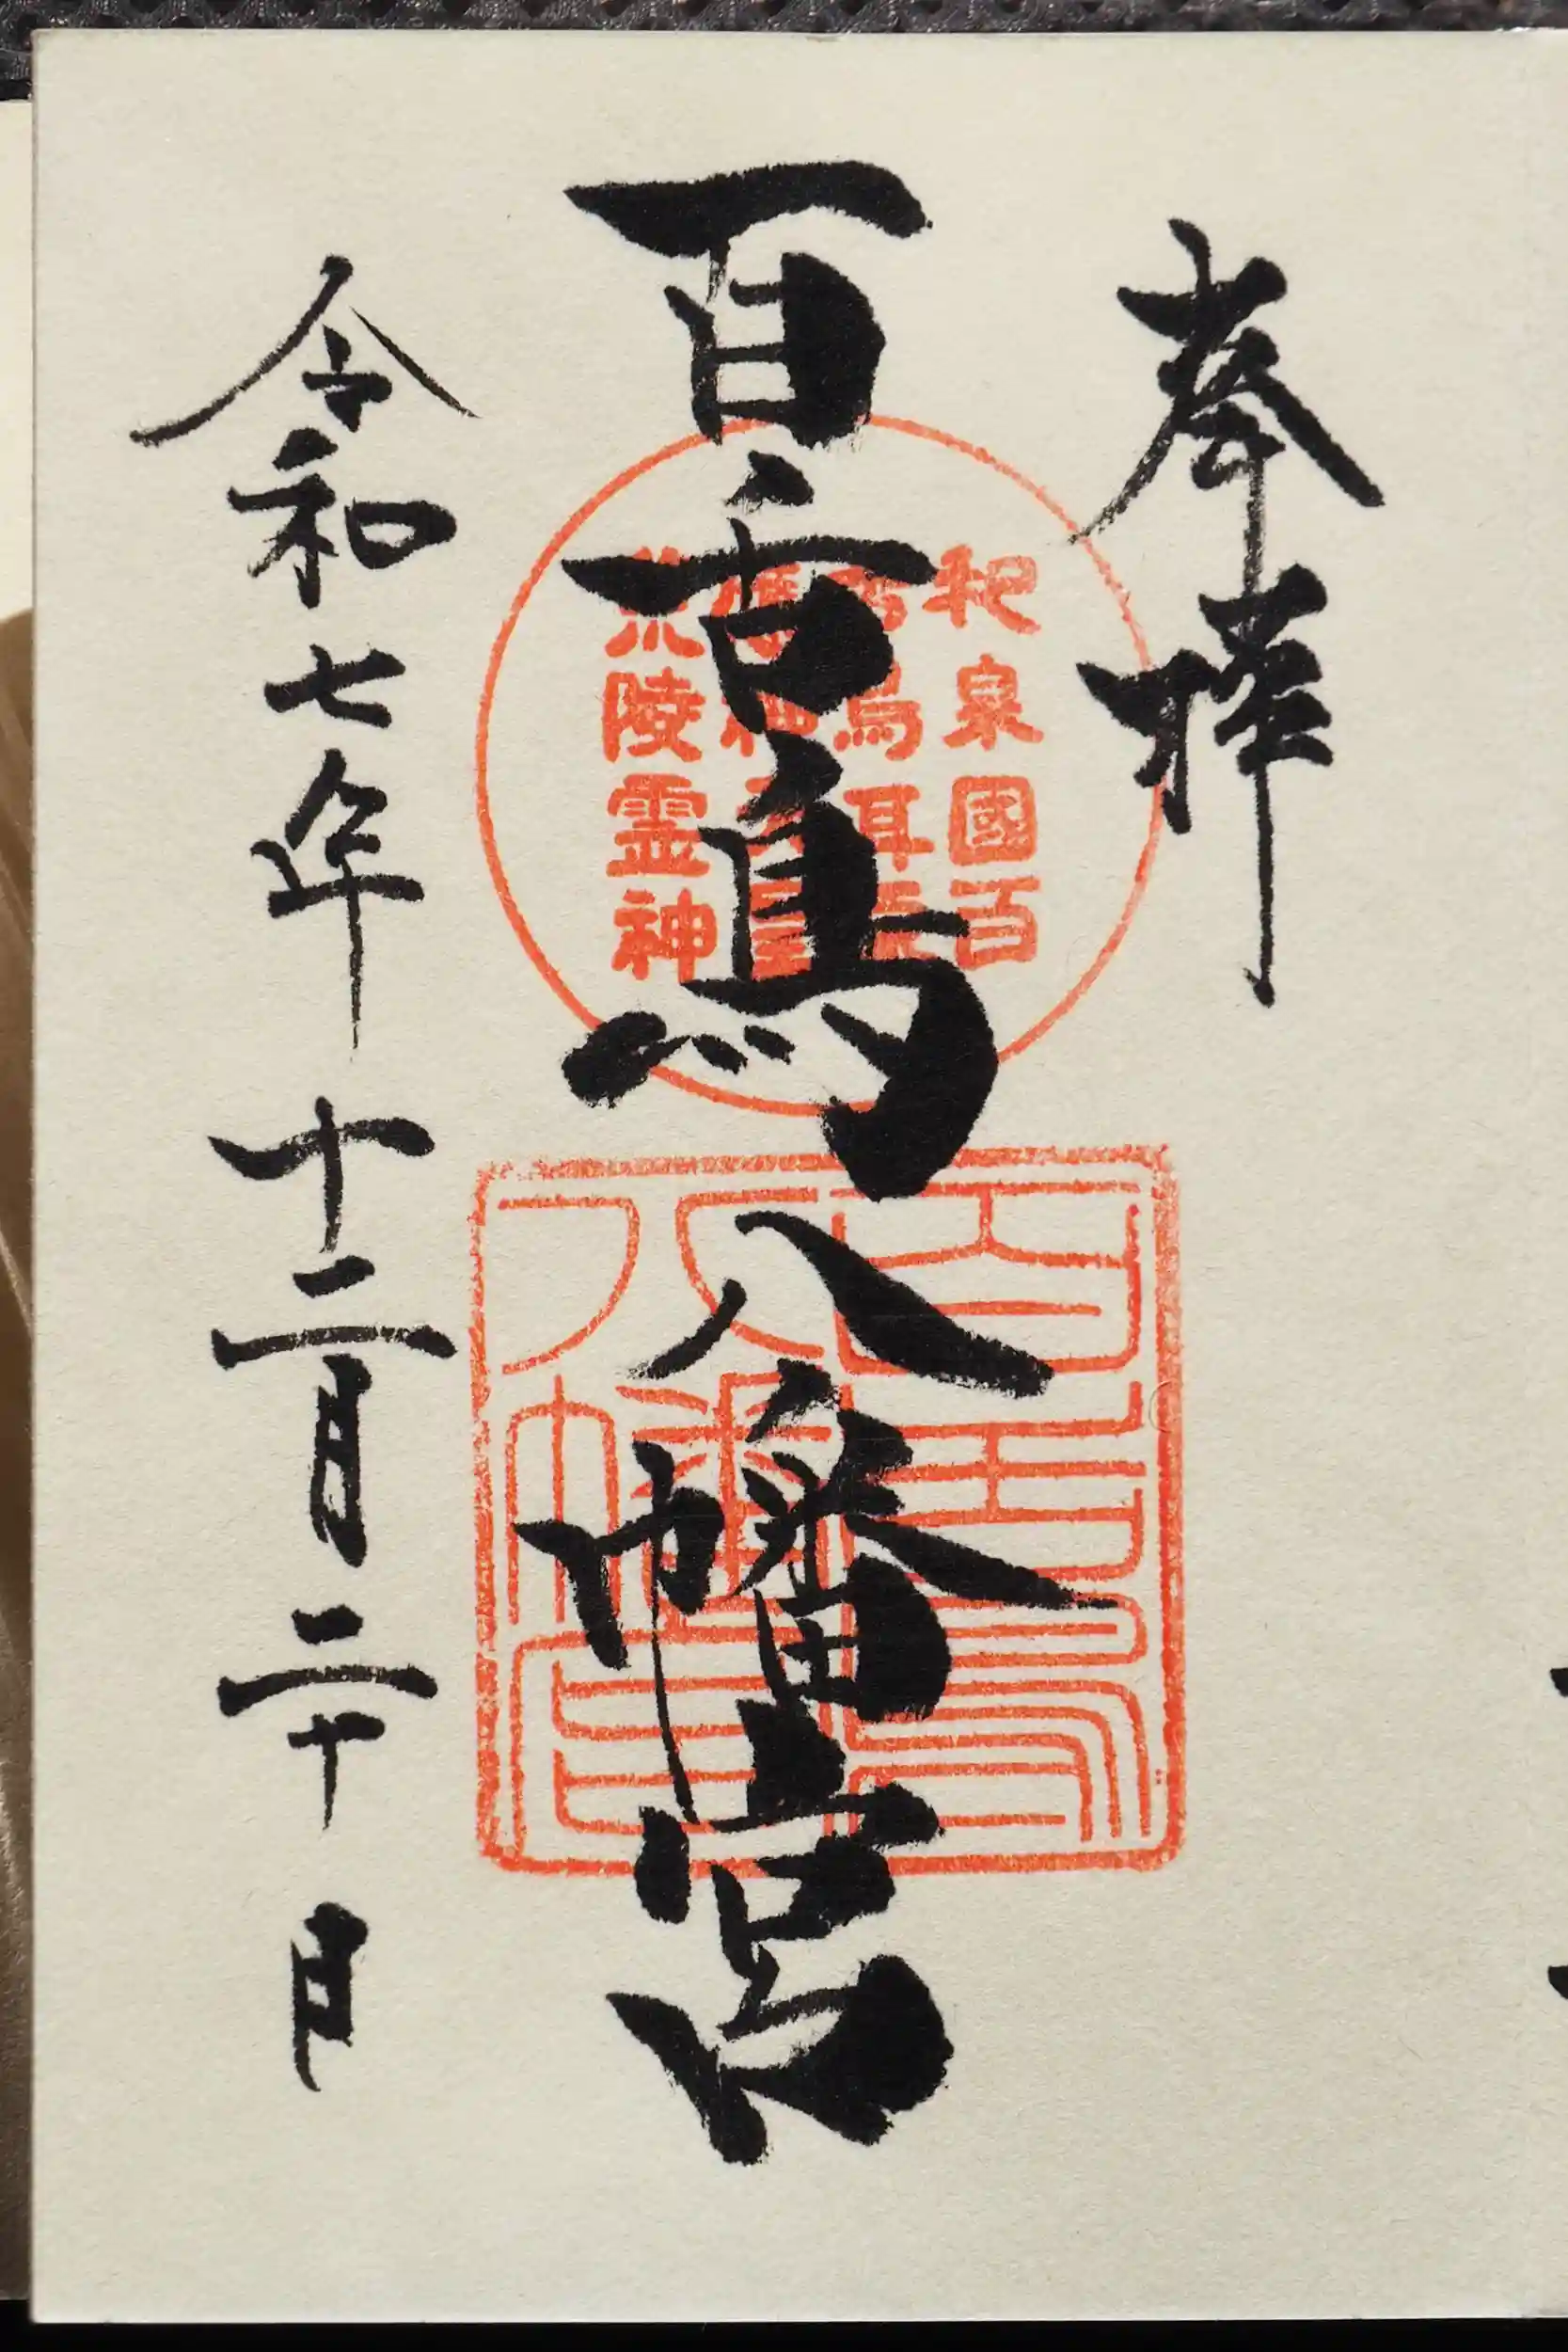 奉拝
百舌鳥八幡宮
令和七年十二月二十日
和泉國百
舌鳥耳原
陵霊神
百舌鳥
八幡宮